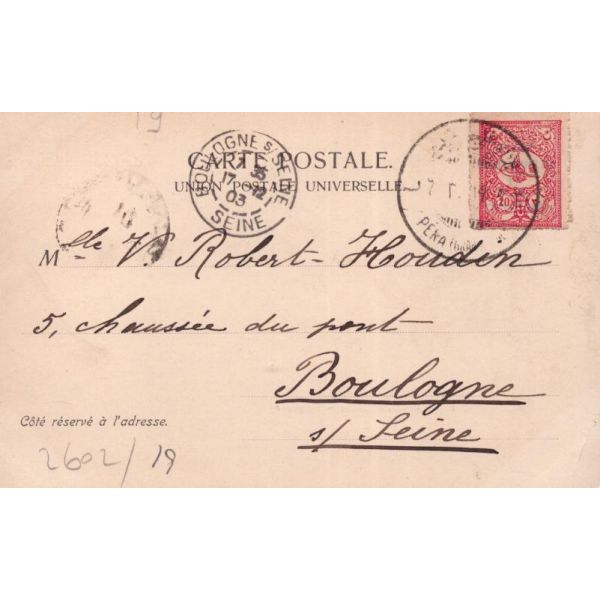 19
BOULOGNE S/SEINE
17 12
03
SEINE
CARTE POSTALE.
UNION POSTALE UNIVERSELLE.
20
PERA
Mlle V Robert-Houdin
5, chaussée du pont
Boulogne
s/ Seine
Côté réservé à l'adresse.
2602/19